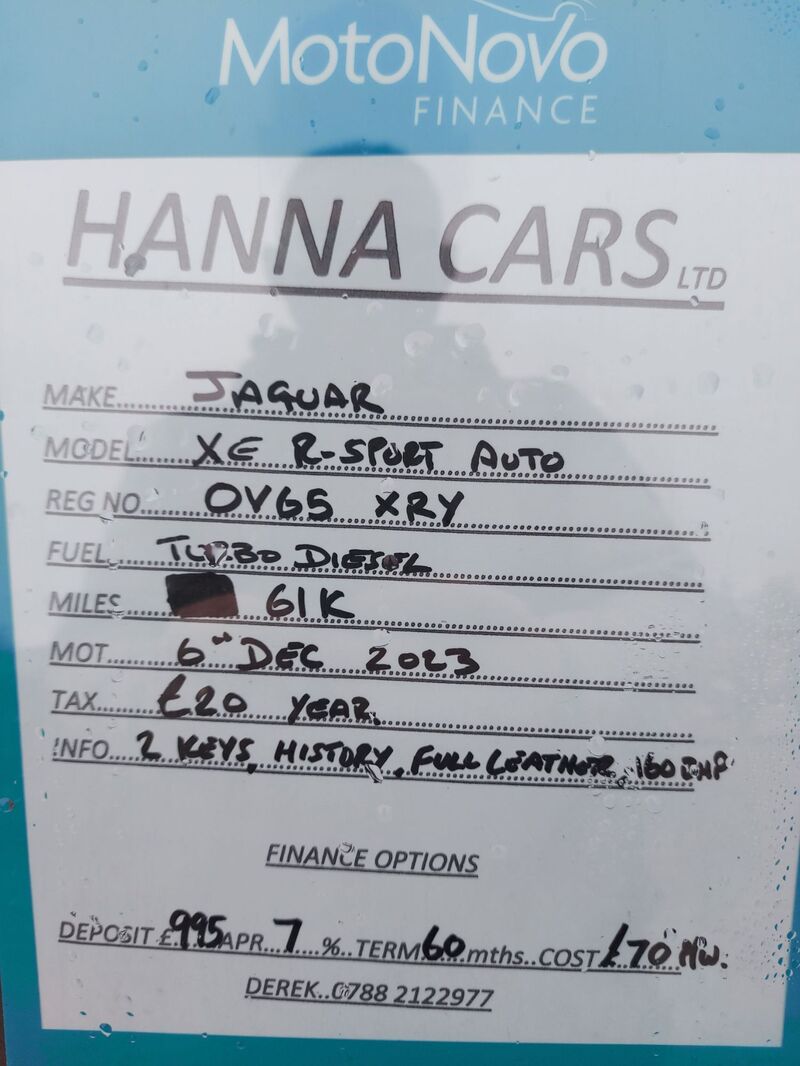 MotoNovo
FINANCE
HANNA CARS LTD
MAKE...... JAGUAR
MODEL...... XE R-SPORT AUTO
REG NO..... OV65 XRY
FUEL...... TURBO DIESEL
MILES 61K
MOT...... 6TH DEC 2023
TAX...... £20 YEAR.
INFO.... 2 KEYS, HISTORY, FULL LEATHER, 160 BHP
FINANCE OPTIONS
DEPOSIT £.995 APR..7....%..TERM 60 mths..COST £70
DEREK..0788 2122977